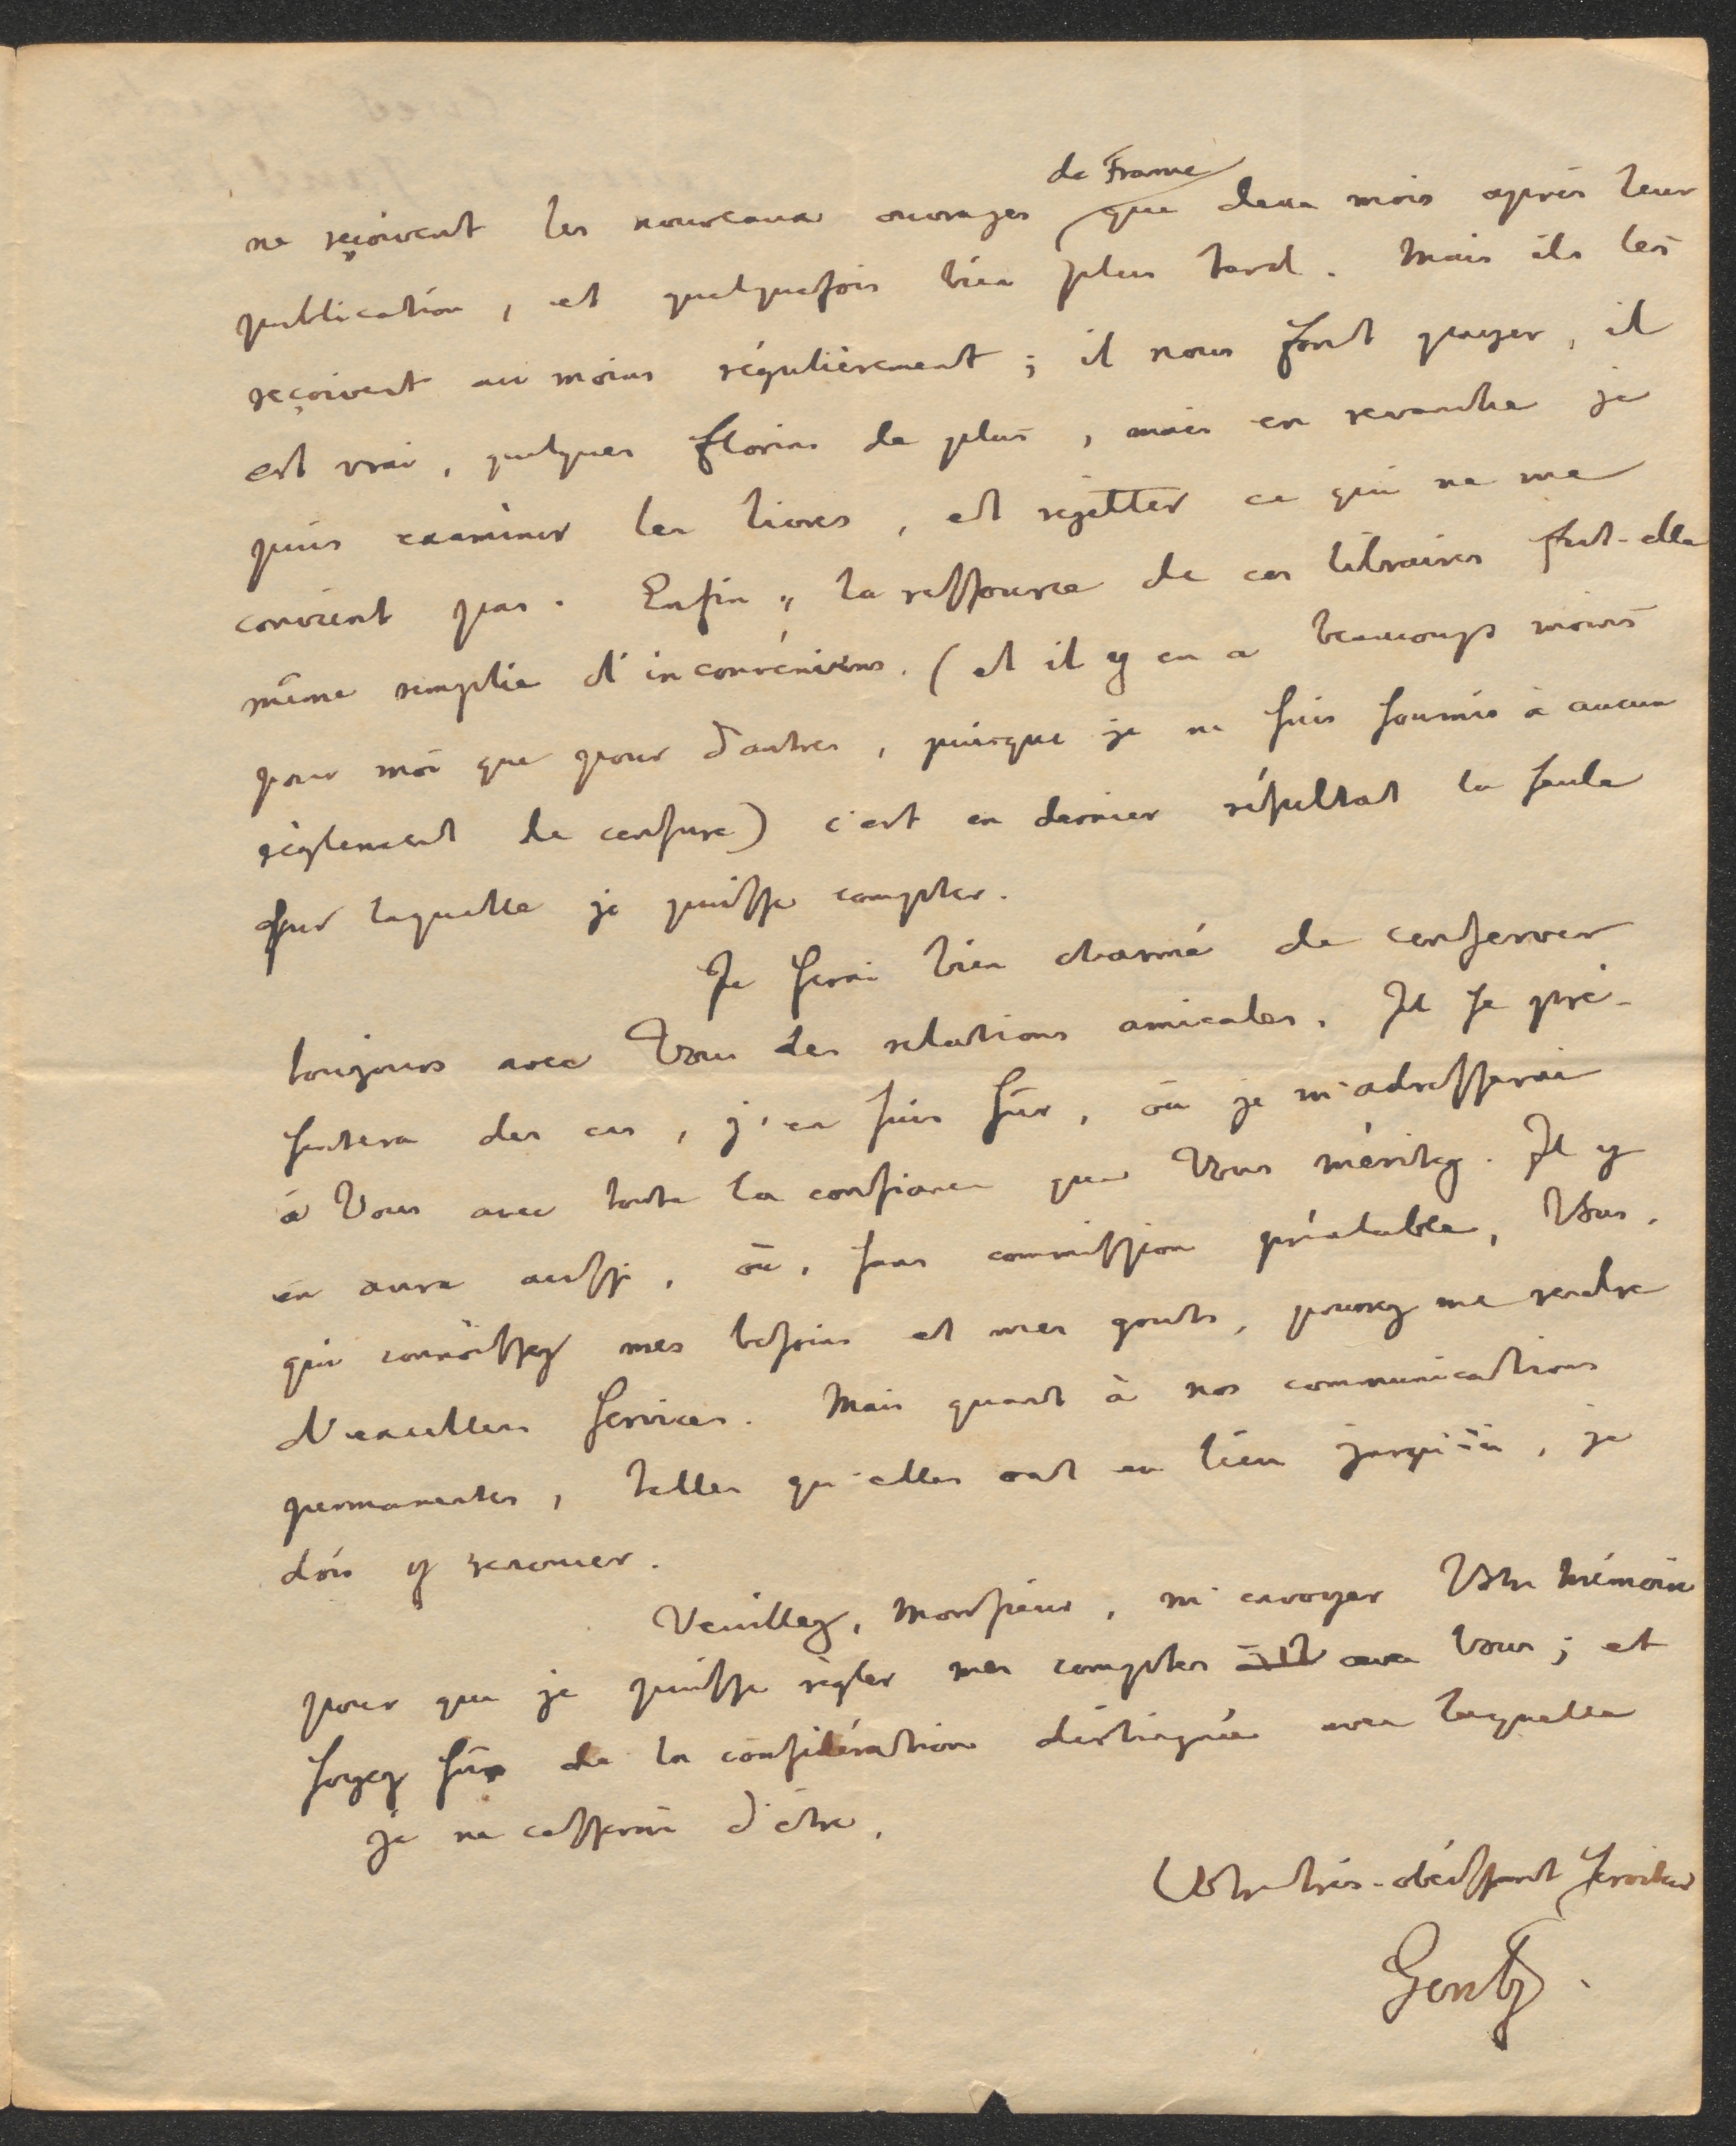 de France
ne reçoivent les nouveaux ouvrages que deux mois après leur
publication, et quelquefois bien plus tard. Mais ils les
reçoivent au moins régulièrement; il nous font payer, il
est vrai, quelques florins de plus, mais en revanche je
puis examiner les livres, et rejetter ce qui ne me
convient pas. Enfin, la ressource de ces libraires fut-elle
même remplie d'inconvéniens. (et il y en a beaucoup moins
pour moi que pour d'autres, puisque je ne suis soumis à aucun
règlement de censure) c'est en dernier résultat la seule
sur laquelle je puisse compter.
Je serai bien charmé de conserver
toujours avec Vous des relations amicales. Il se pré-
sentera des cas, j'en suis sûr, où je m'adresserai
à Vous avec toute la confiance que Vous méritez. Il y
en aura aussi, où, sans commission préalable, Vous,
qui connoissez mes besoins et mes gouts, pourrez me rendre
d'excellens services. Mais quant à nos communications
permanentes, telles qu'elles ont eu lieu jusqu'ici, je
dois y renoncer.
Veuillez, Monsieur, m'envoyer Votre Mémoire
pour que je puisse règler mes comptes avec Vous; et
soyez sûr de la considération distinguée avec laquelle
je ne cesserai d'être,
Votre très-obéissant serviteur
Gentz.